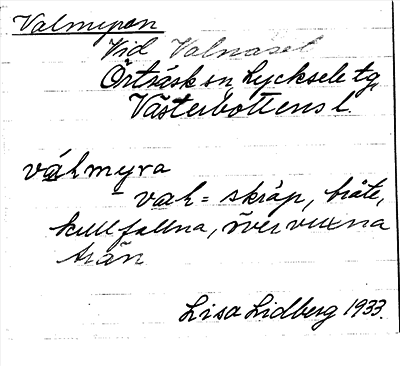 Valmyran
Vid Valnäset
Örträsk sn Lycksele tg
Västerbottens l
våhmyra
vah = skräp, bråte,
kullfallna, övervuxna
trän
Lisa Lidberg 1933.